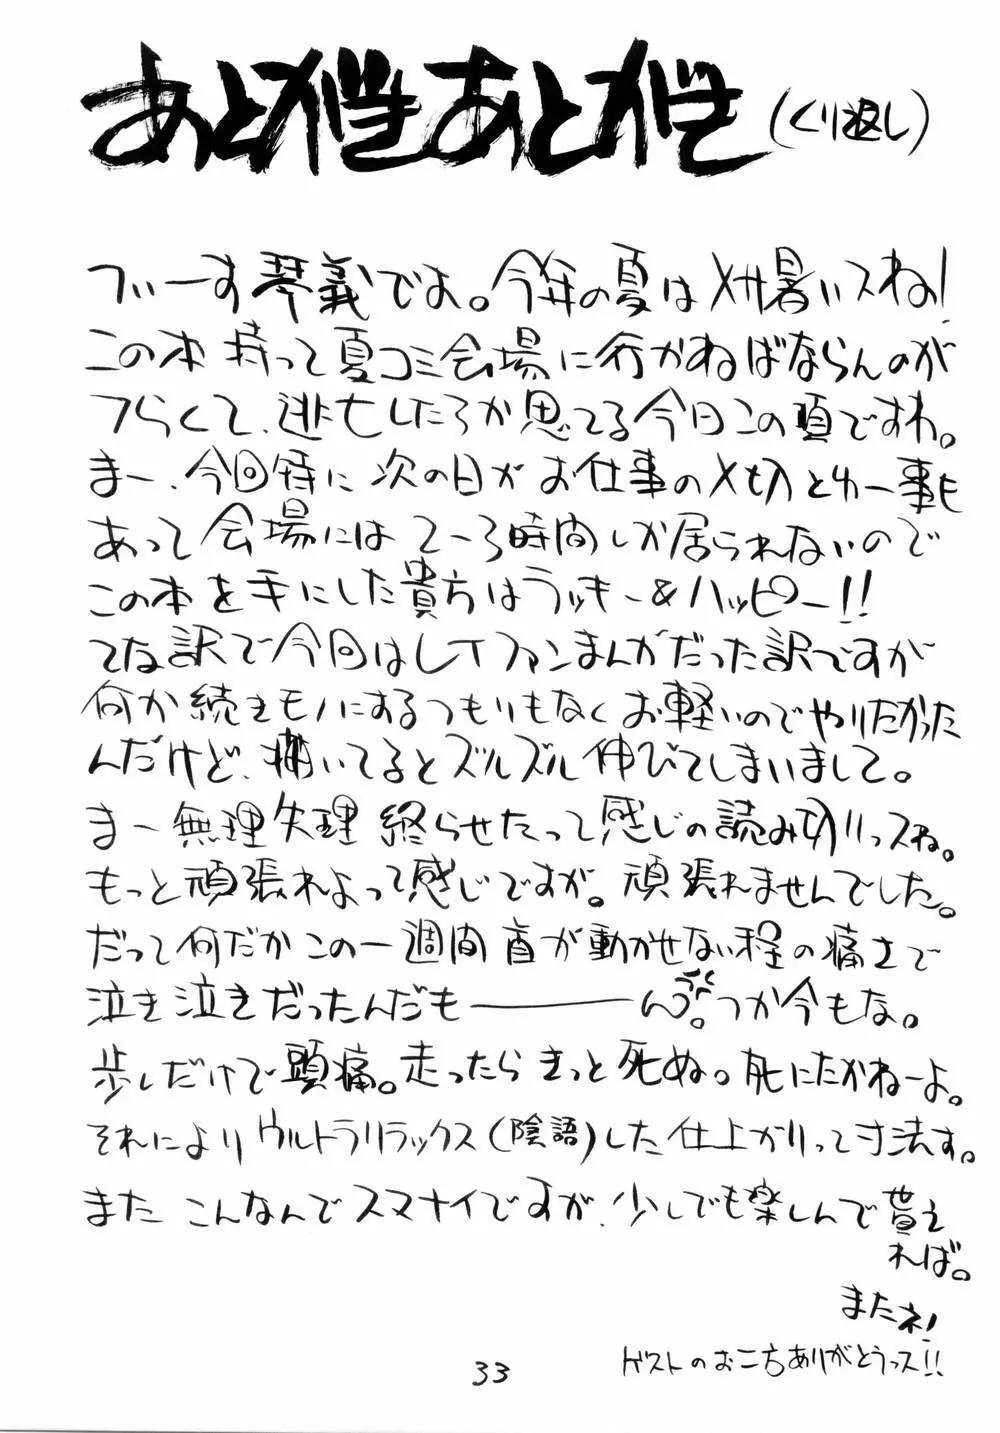 あとがきあとがき(くり返し)
ぶぃーす琴義でよ。今年の夏はメサ暑いスね!
この本持って夏コミ会場に行かねばならんのが
つらくて、逃亡したろか思てる今日この頃ですわ。
まー、今回特に次の日がお仕事の〆切とゆー事も
あって会場には2〜3時間しか居られないので
この本を手にした貴方はラッキー&ハッピー!!
てな訳で今回はLFファンまんがだった訳ですが
何か続きモノにするつもりもなくお軽いのでやりたかった
んだけど、描いてるとズルズル伸びてしまいまして。
まー無理矢理終らせたって感じの読み切りっスね。
もっと頑張れよって感じですが。頑張れませんでした。
だって何だかこの一週間首が動かせない程の痛さで
泣き泣きだったんだも――――ん。つか今もな。
歩くだけで頭痛。走ったらきっと死ぬ。死にたかねーよ。
それによりウルトラリラックス(陰語)した仕上がりって寸法す。
またこんなんでスマナイですが、少しでも楽しんで貰え
れば。
またネ!
ゲストのお二方ありがとうっス!!
33